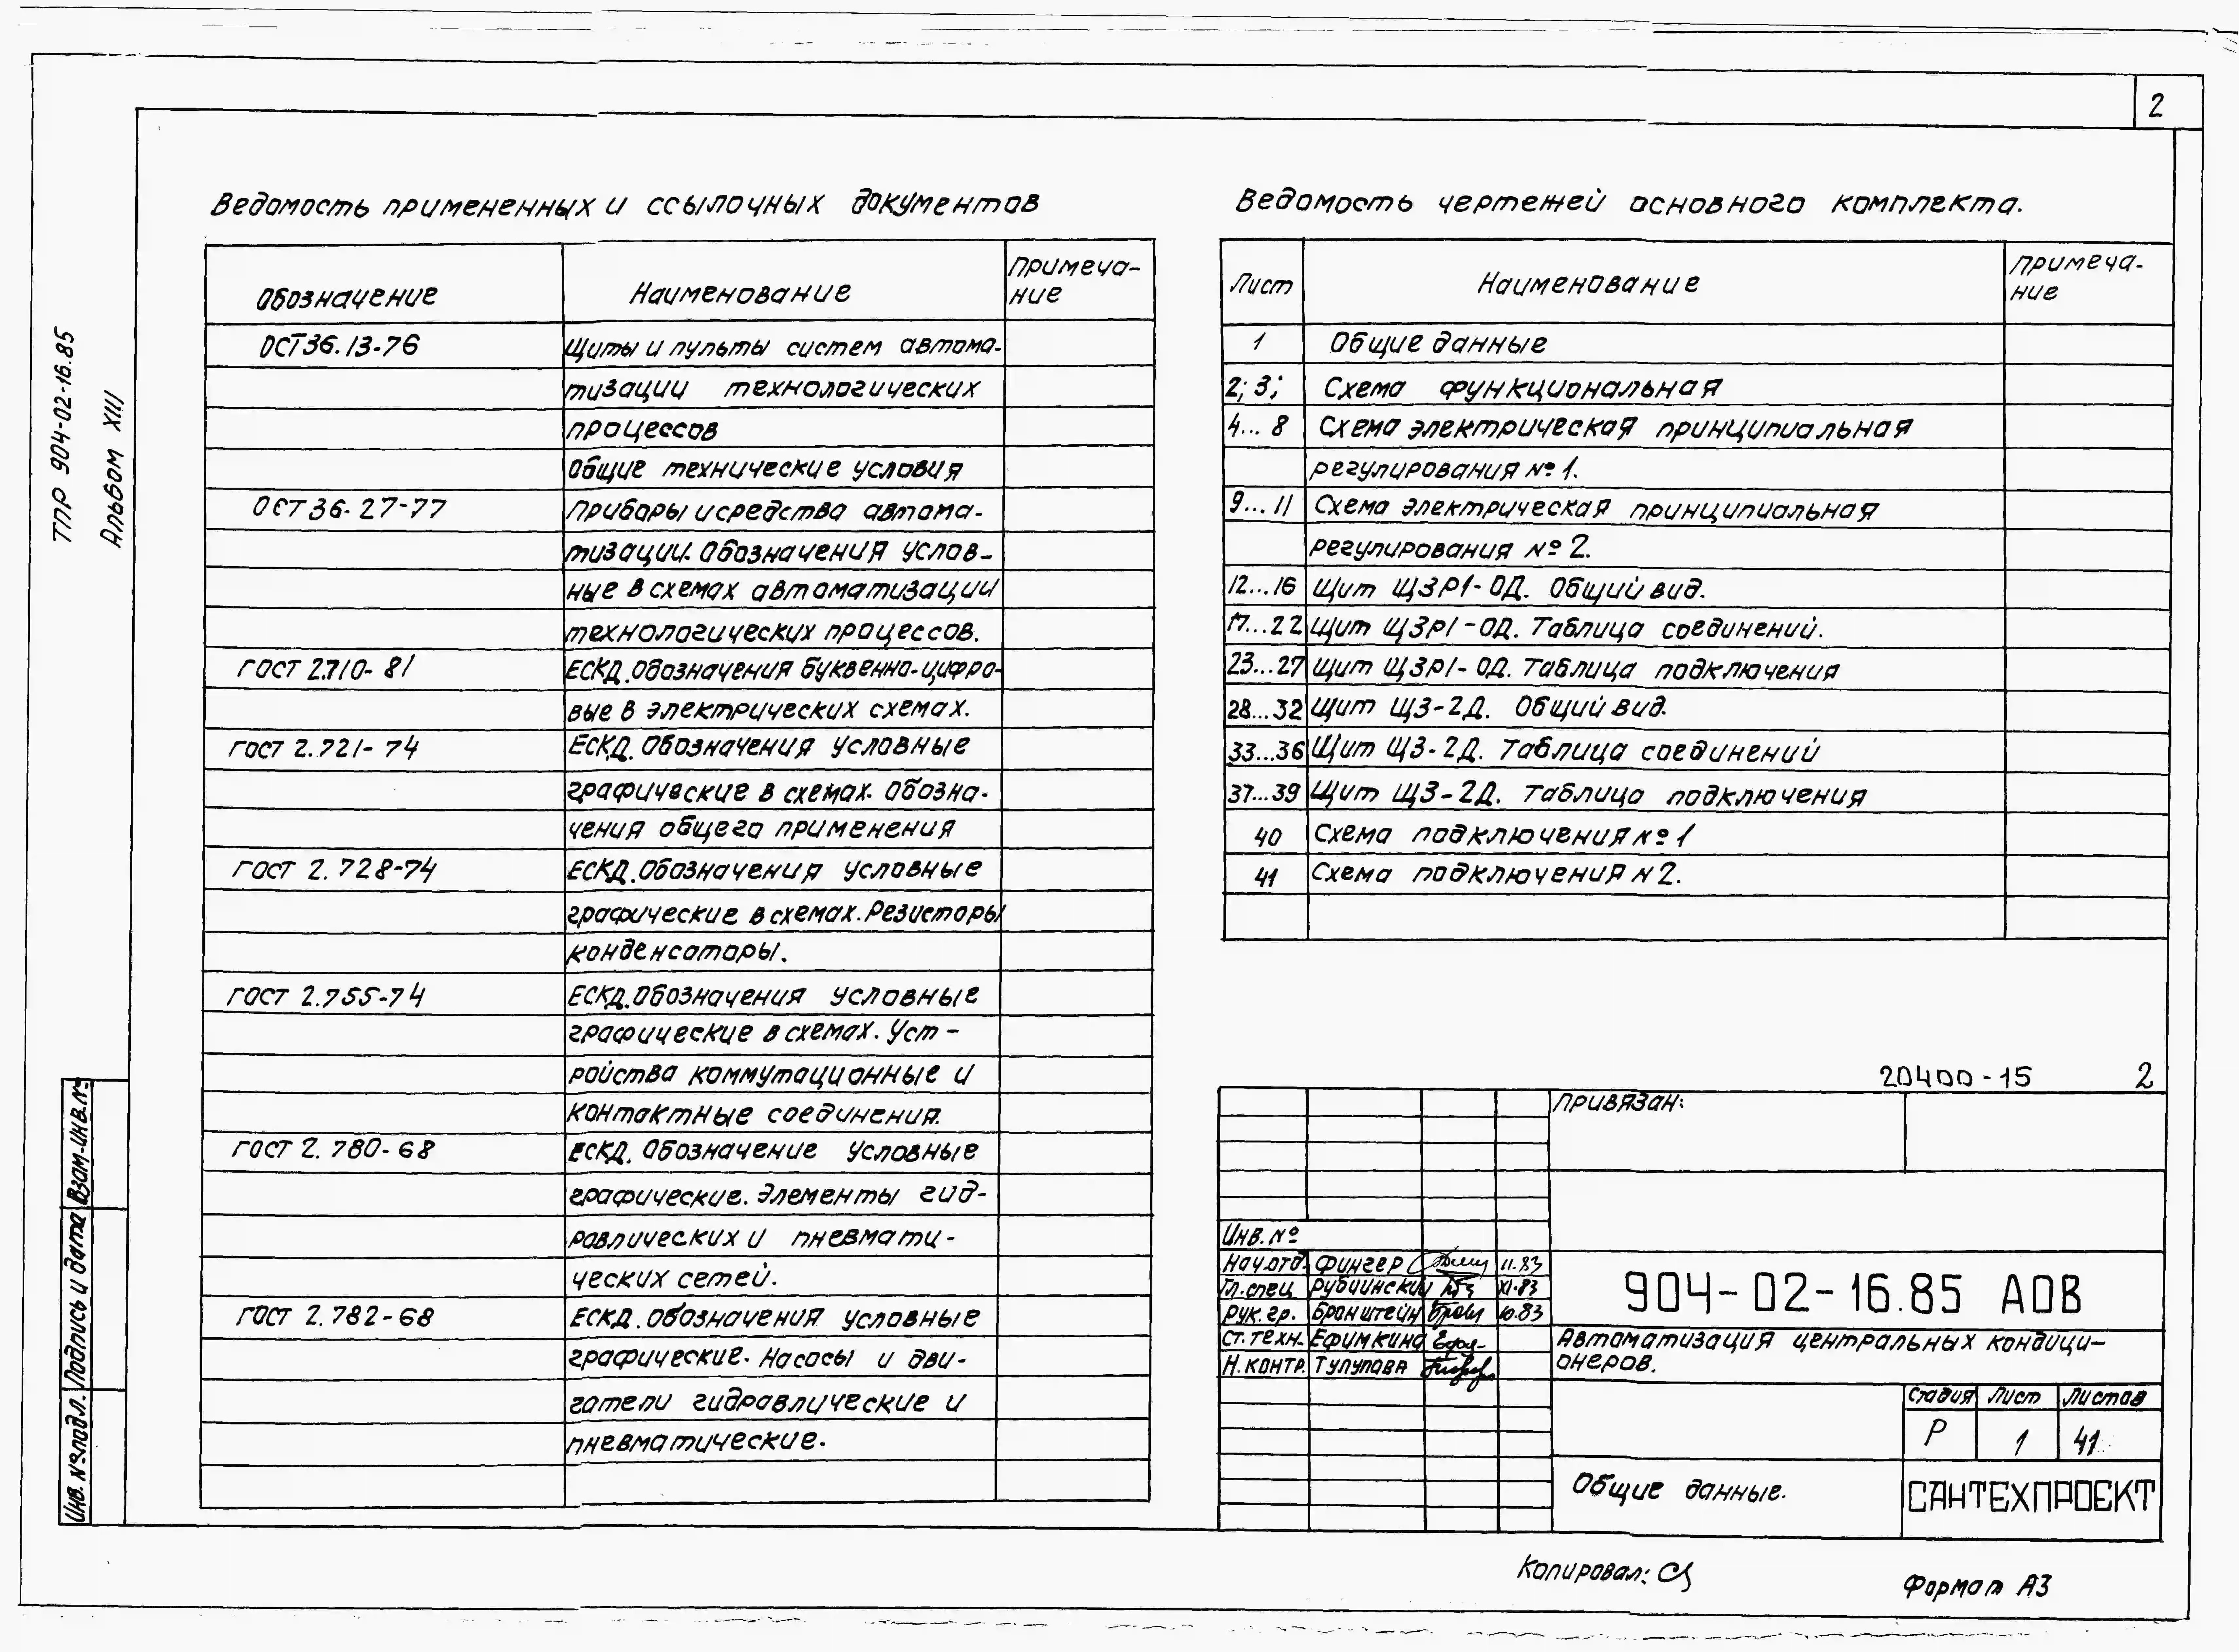 2
ТПР 904-02-16.85
Альбом XIII
Ведомость примененных и ссылочных документов
Обозначение
Наименование
Примеча-
ние
ОСТ36.13-76
Щиты и пульты систем автома-
тизации технологических
процессов
Общие технические условия
ОСТ36-27-77
Приборы и средства автома-
тизации. Обозначения услов-
ные в схемах автоматизации
технологических процессов.
ГОСТ 2.710-81
ЕСКД. Обозначения буквенно-цифро-
вые в электрических схемах.
ГОСТ 2.721-74
ЕСКД. Обозначения условные
графические в схемах. Обозна-
чения общего применения
ГОСТ 2.728-74
ЕСКД. Обозначения условные
графические в схемах. Резисторы
конденсаторы.
ГОСТ 2.755-74
ЕСКД. Обозначения условные
графические в схемах. Уст-
ройства коммутационные и
контактные соединения.
ГОСТ 2.780-68
ЕСКД. Обозначение условные
графические. Элементы гид-
равлических и пневмати-
ческих сетей.
ГОСТ 2.782-68
ЕСКД. Обозначения условные
графические. Насосы и дви-
гатели гидравлические и
пневматические.
Ведомость чертежей основного комплекта.
Лист
Наименование
Примеча-
ние
1 Общие данные
2; 3; Схема функциональная
4...8 Схема электрическая принципиальная
регулирования №1.
9...11 Схема электрическая принципиальная
регулирования №2.
12...16 Щит ЩЗР1-ОД. Общий вид.
17...22 Щит ЩЗР1-ОД. Таблица соединений.
23...27 Щит ЩЗР1-ОД. Таблица подключения
28...32 Щит ЩЗ-2Д. Общий вид.
33...36 Щит ЩЗ-2Д. Таблица соединений
37...39 Щит ЩЗ-2Д. Таблица подключения
40 Схема подключения №1
41 Схема подключения N2.
20400-15 2
Привязан:
Инв. №
Нач.отд. Фингер 11.83
Гл.спец. Рубчинский XI.83
Рук. гр. Бронштейн 10.83
Ст. техн. Ефимкина
Н. контр. Тулупова
904-02-16.85 АОВ
Автоматизация центральных кондици-
онеров.
Стадия Лист Листов
Р 1 41
Общие данные.
САНТЕХПРОЕКТ
Взам.инв.№
Подпись и дата
Инв. №подл.
Копировал:
Формат А3